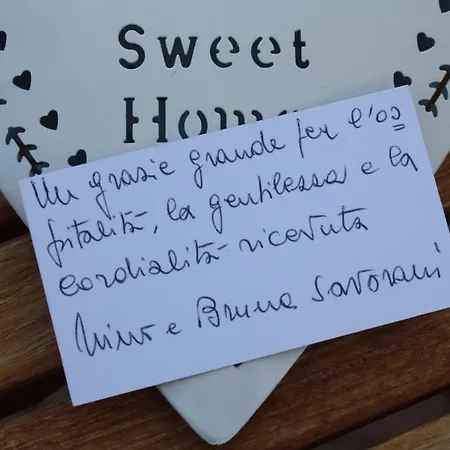 Sweet
Home
Un grazie grande per l'os
pitalità, la gentilezza e la
cordialità ricevuta
Nino e Bruna Savorani